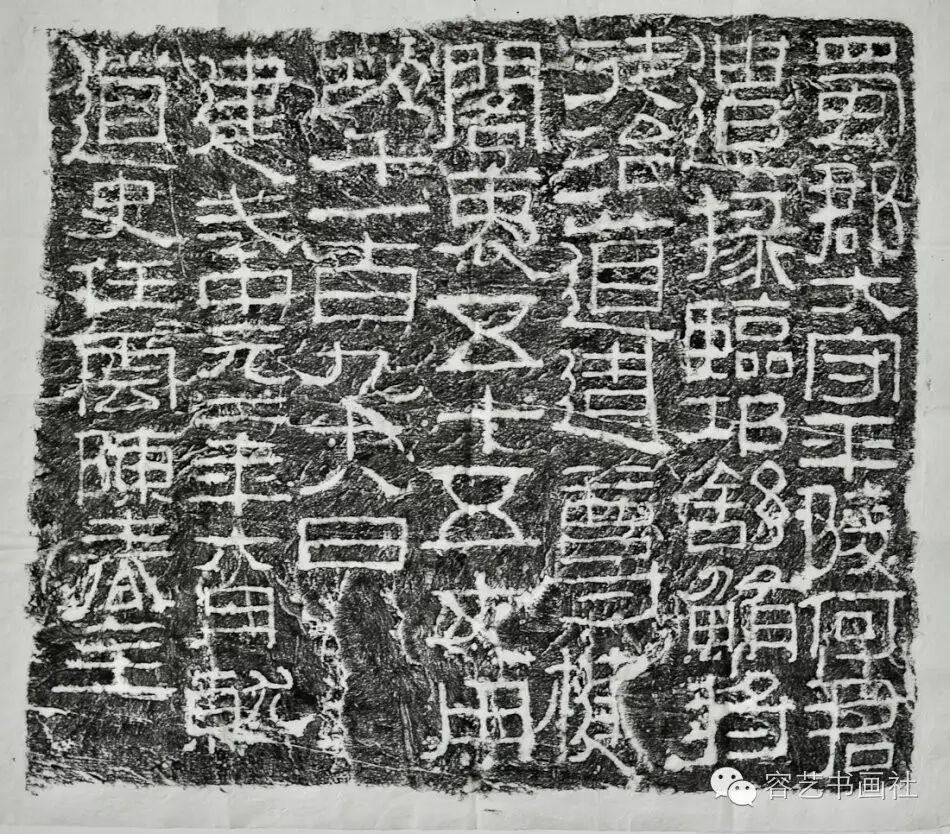 蜀郡大守平陵何君
遣掾臨邛舒鮪將
徒治道造尊楗
閣袤五十五丈用
功千一百九十八日
建武中元二年六月就
道史任雲陳春主
容艺书画社